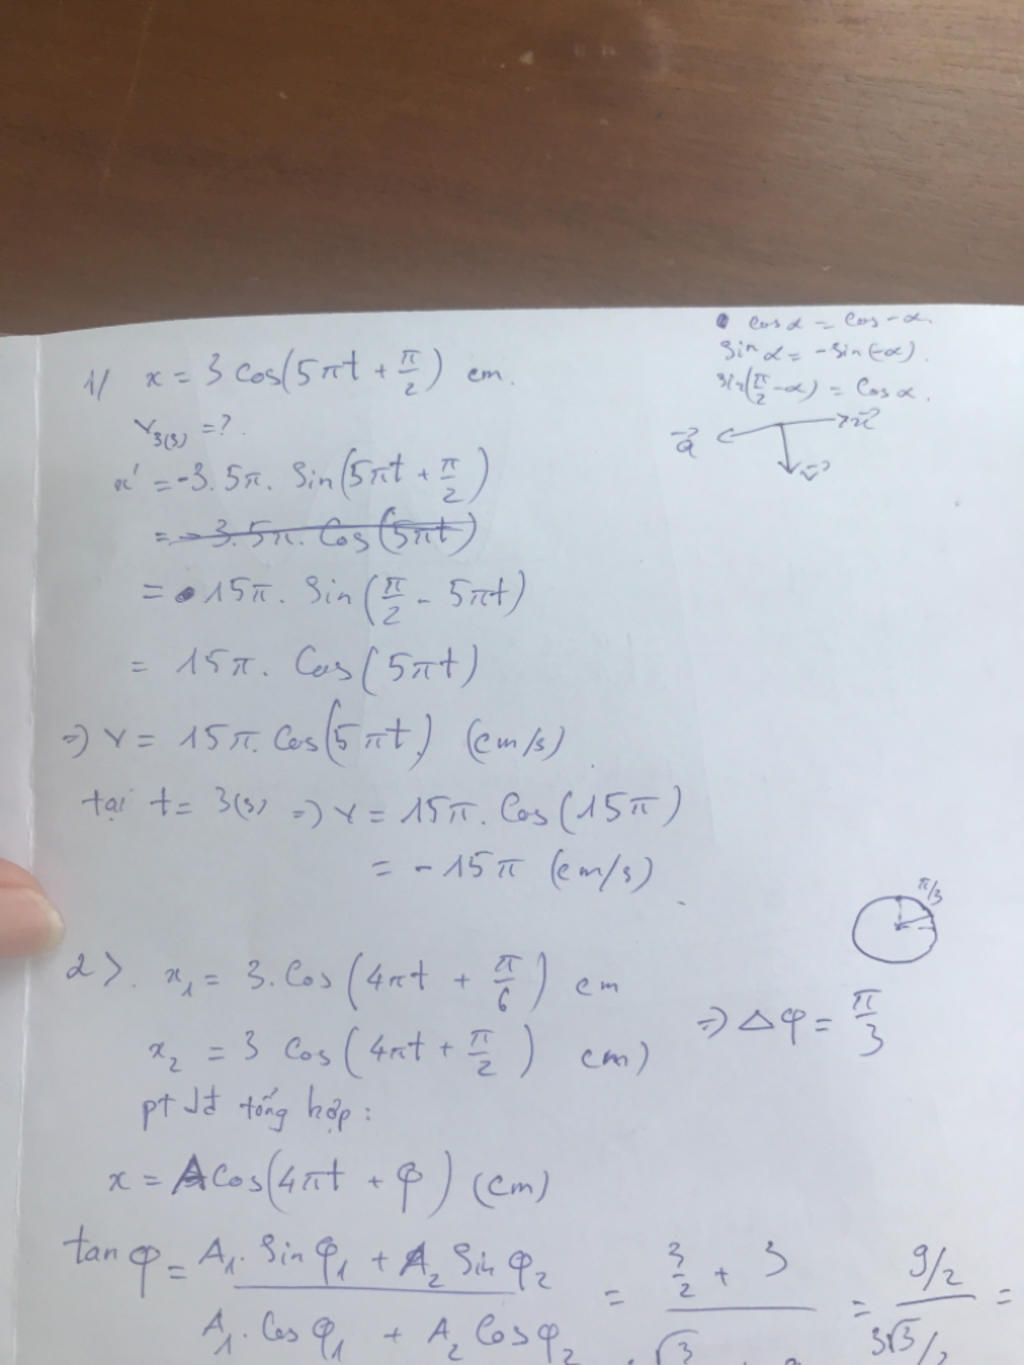 • cosα = cos-α.
sinα = -sin(-α).
sin(π/2 - α) = cosα.
1/ x = 3 cos(5πt + π/2) cm.
V3(s) = ?
a⃗ x⃗
v⃗
x' = -3.5π. sin(5πt + π/2)
= -3.5π. cos(5πt)
= 15π. sin(π/2 - 5πt)
= 15π. cos(5πt)
=> v = 15π. cos(5πt) (cm/s)
tại t = 3(s) => v = 15π. cos(15π)
= -15π (cm/s)
π/3
2>. x₁ = 3. cos(4πt + π/6) cm
x₂ = 3 cos(4πt + π/2) cm)
=> Δφ = π/3
pt dđ tổng hợp:
x = Acos(4πt + φ) (cm)
tan φ = A₁. sin φ₁ + A₂ sin φ₂ / A₁. cos φ₁ + A₂ cos φ₂ = 3/2 + 3 / √3 = 9/2 / 3√3/2 =